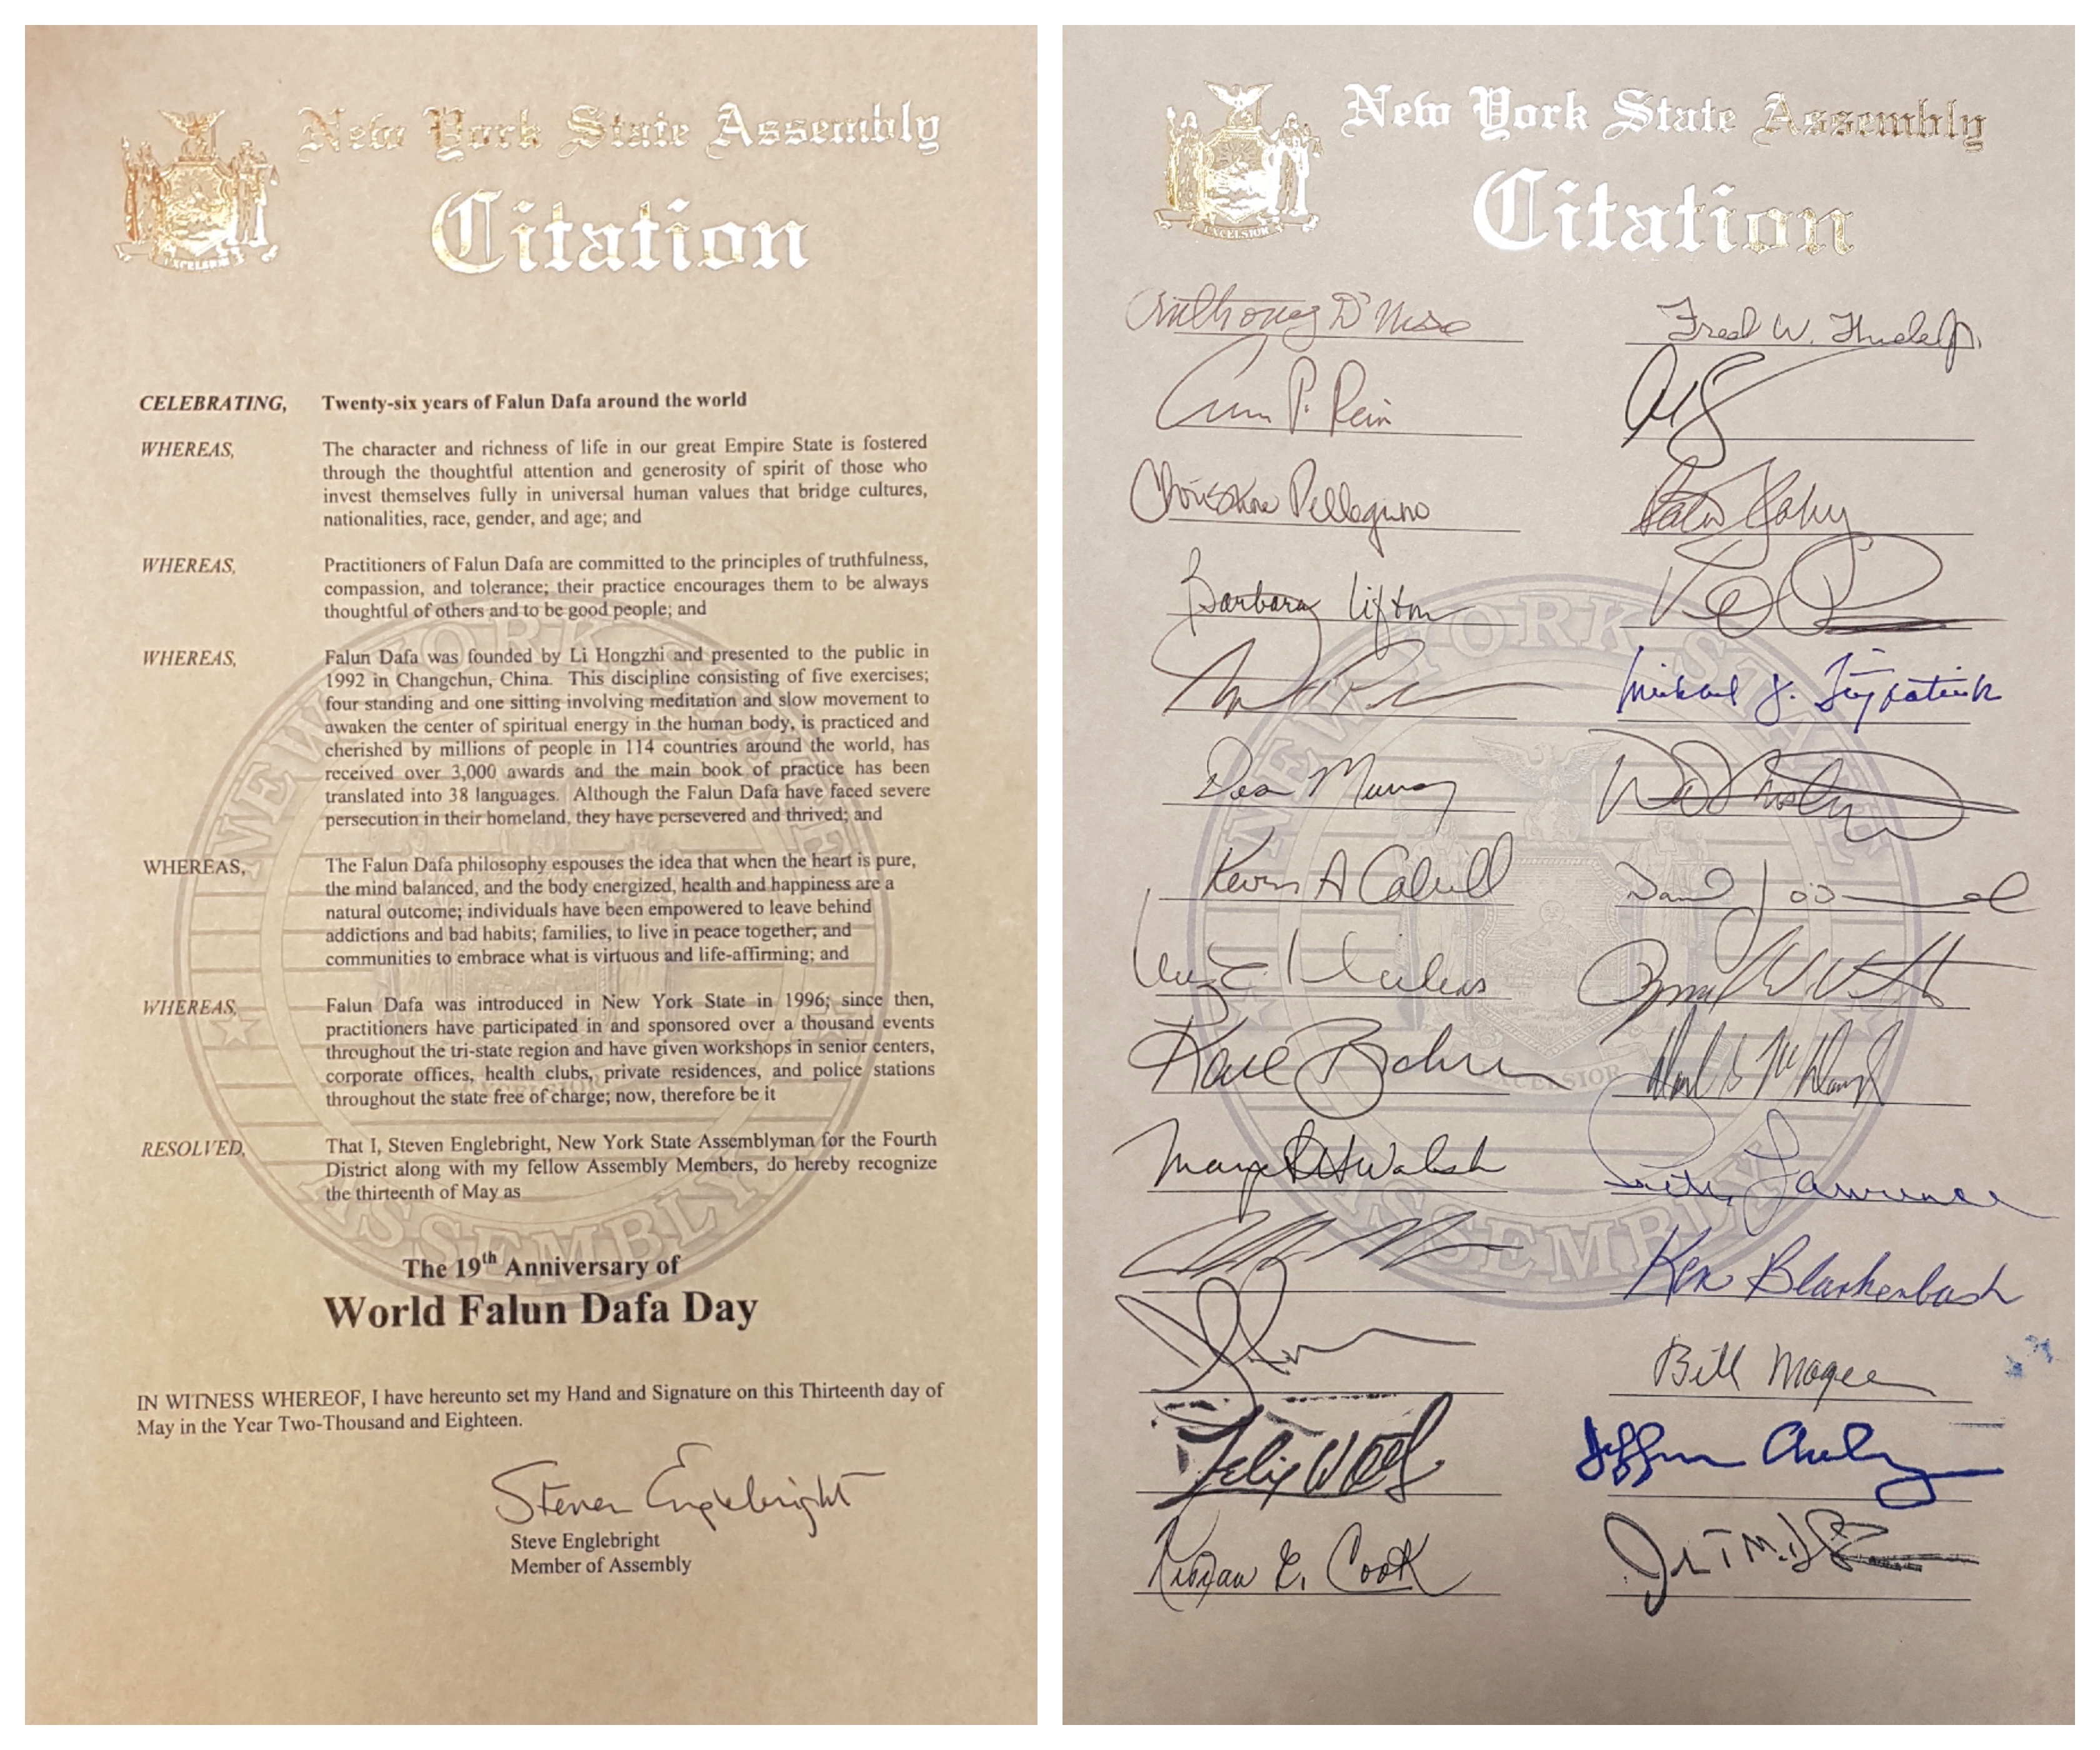 New York State Assembly
Citation
EXCELSIOR
CELEBRATING, Twenty-six years of Falun Dafa around the world
WHEREAS, The character and richness of life in our great Empire State is fostered
through the thoughtful attention and generosity of spirit of those who
invest themselves fully in universal human values that bridge cultures,
nationalities, race, gender, and age; and
WHEREAS, Practitioners of Falun Dafa are committed to the principles of truthfulness,
compassion, and tolerance; their practice encourages them to be always
thoughtful of others and to be good people; and
WHEREAS, Falun Dafa was founded by Li Hongzhi and presented to the public in
1992 in Changchun, China. This discipline consisting of five exercises;
four standing and one sitting involving meditation and slow movement to
awaken the center of spiritual energy in the human body, is practiced and
cherished by millions of people in 114 countries around the world, has
received over 3,000 awards and the main book of practice has been
translated into 38 languages. Although the Falun Dafa have faced severe
persecution in their homeland, they have persevered and thrived; and
WHEREAS, The Falun Dafa philosophy espouses the idea that when the heart is pure,
the mind balanced, and the body energized, health and happiness are a
natural outcome; individuals have been empowered to leave behind
addictions and bad habits; families, to live in peace together; and
communities to embrace what is virtuous and life-affirming; and
WHEREAS, Falun Dafa was introduced in New York State in 1996; since then,
practitioners have participated in and sponsored over a thousand events
throughout the tri-state region and have given workshops in senior centers,
corporate offices, health clubs, private residences, and police stations
throughout the state free of charge; now, therefore be it
RESOLVED, That I, Steven Englebright, New York State Assemblyman for the Fourth
District along with my fellow Assembly Members, do hereby recognize
the thirteenth of May as
The 19th Anniversary of
World Falun Dafa Day
IN WITNESS WHEREOF, I have hereunto set my Hand and Signature on this Thirteenth day of
May in the Year Two-Thousand and Eighteen.
Steven Englebright
Steve Englebright
Member of Assembly
NEW YORK STATE ASSEMBLY
New York State Assembly
Citation
EXCELSIOR
Anthony D'Urso
Fred W. Thiele Jr.
Barbara Lifton
Michael J. Fitzpatrick
Dean Murray
Kevin A Cahill
Ken Blankenbush
Bill Magee
Felix
Vivian E. Cook
NEW YORK STATE ASSEMBLY
EXCELSIOR